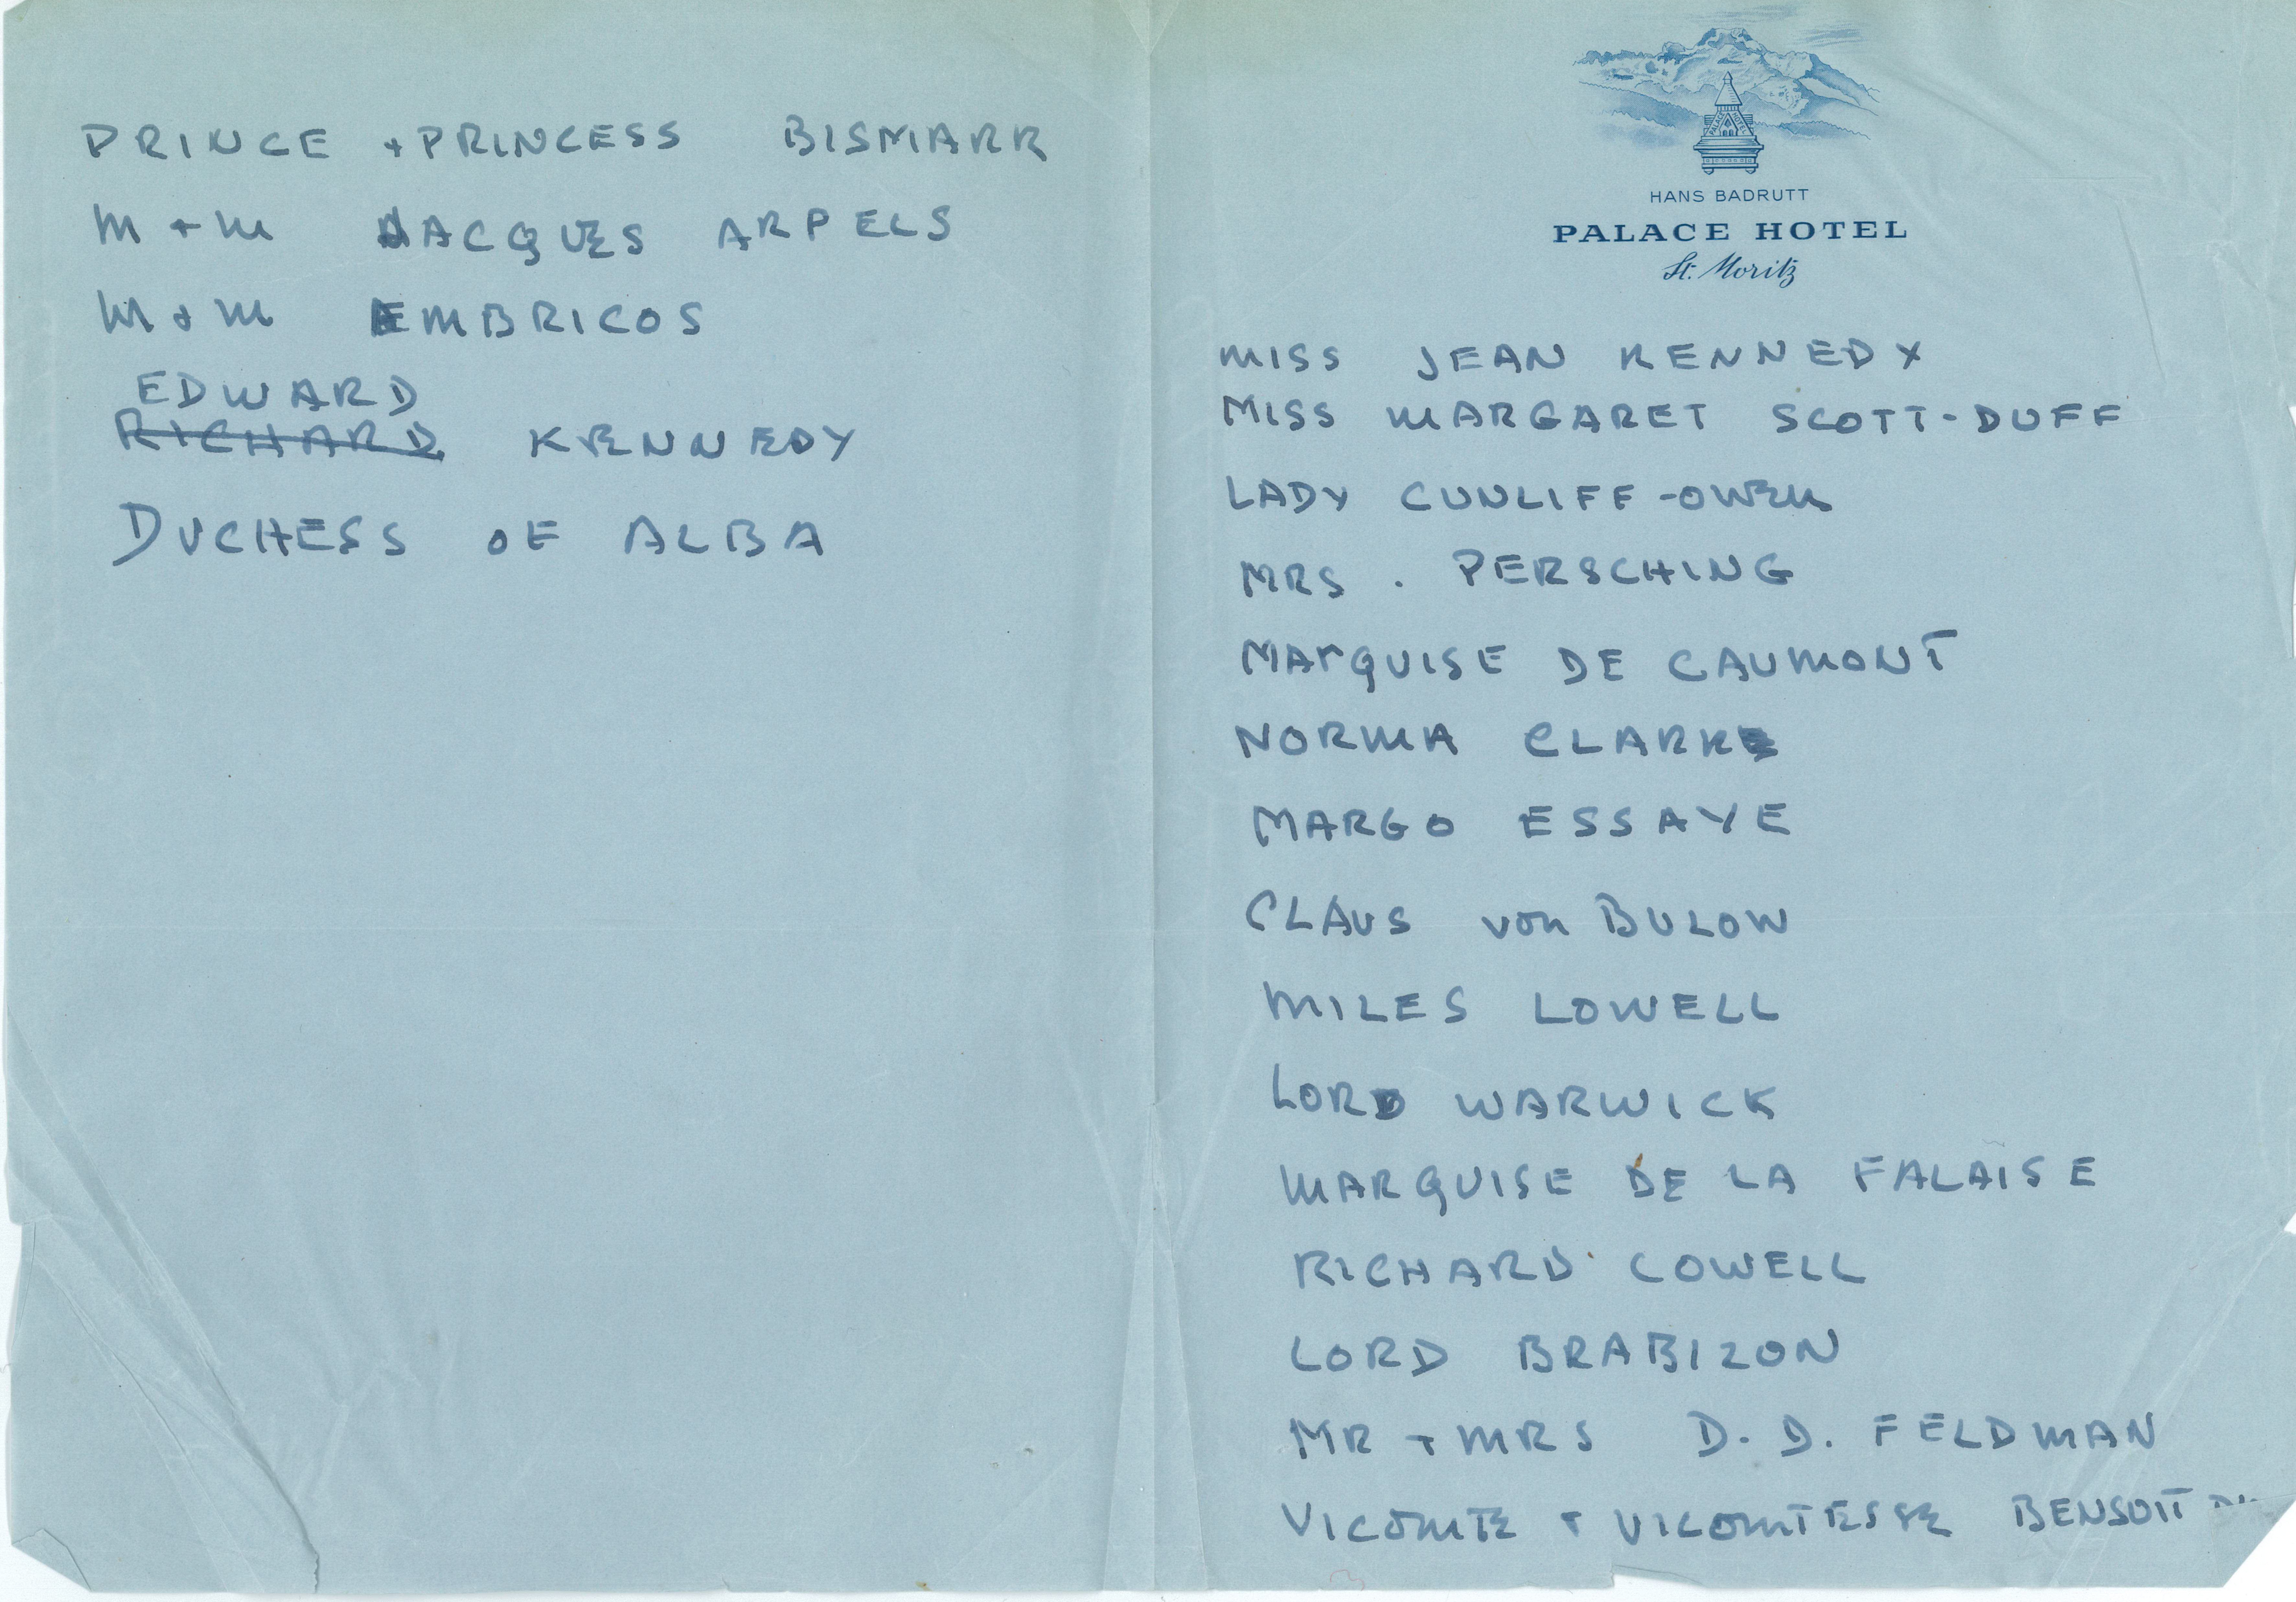 PRINCE + PRINCESS BISMARK
M + M JACQUES ARPELS
M + M EMBRICOS
EDWARD
RICHARD KENNEDY
DUCHESS OF ALBA
PALACE HOTEL
HANS BADRUTT
PALACE HOTEL
St. Moritz
MISS JEAN KENNEDY
MISS MARGARET SCOTT-DUFF
LADY CUNLIFF-OWEN
MRS. PERSCHING
MARQUISE DE CAUMONT
NORMA CLARKE
MARGO ESSAYE
CLAUS von BULOW
MILES LOWELL
LORD WARWICK
MARQUISE DE LA FALAISE
RICHARD COWELL
LORD BRABIZON
MR + MRS D. D. FELDMAN
VICOMTE + VICOMTESSE BENSOIT